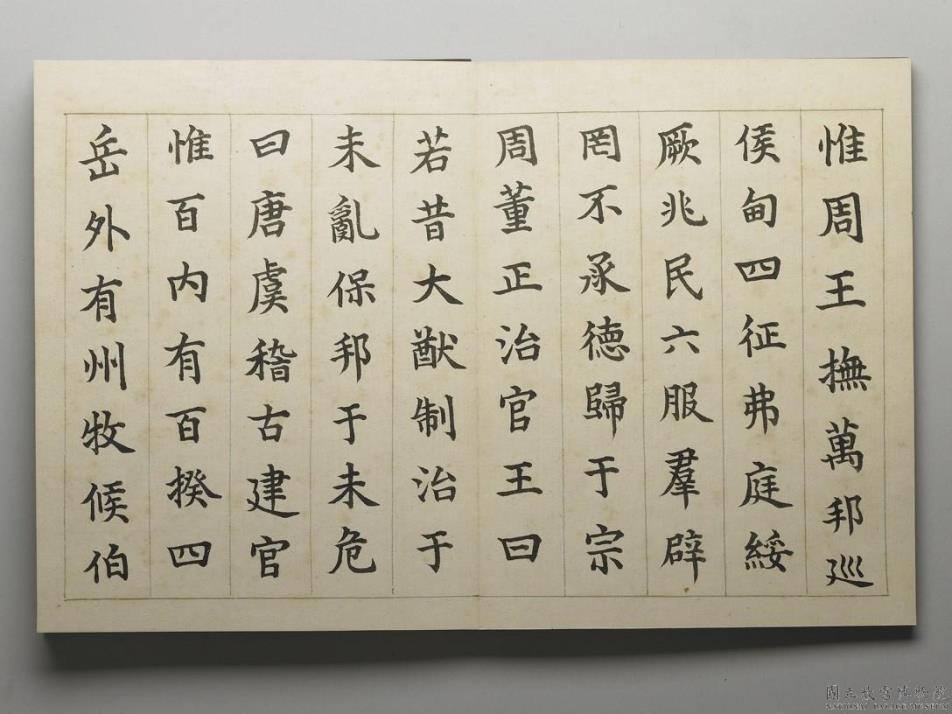 惟周王撫萬邦巡
侯甸四征弗庭綏
厥兆民六服羣辟
罔不承德歸于宗
周董正治官王曰
若昔大猷制治于
未亂保邦于未危
曰唐虞稽古建官
惟百内有百揆四
岳外有州牧候伯
國立故宮博物院
NATIONAL PALACE MUSEUM